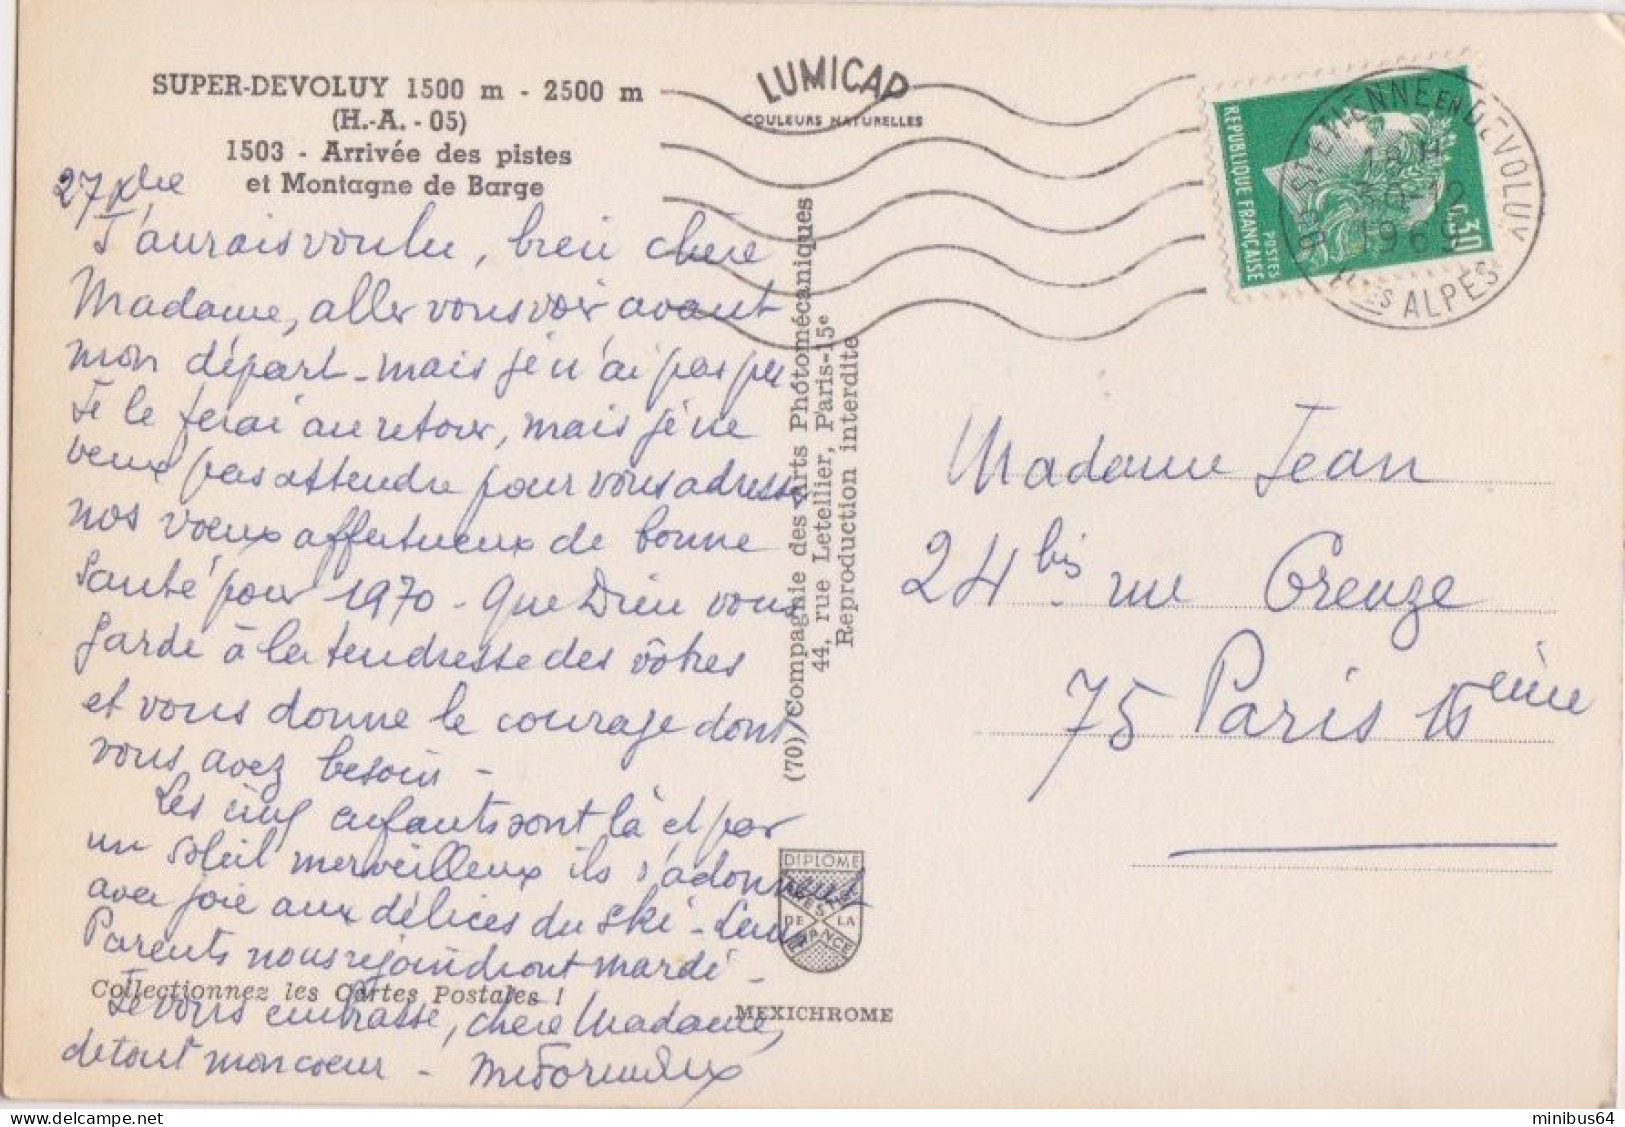 SUPER-DEVOLUY 1500 m - 2500 m
(H.-A. - 05)
1503 - Arrivée des pistes
et Montagne de Barge
LUMICAP
COULEURS NATURELLES
REPUBLIQUE FRANÇAISE
POSTES
0,30
05 ST ETIENNE EN DEVOLUY
18 H
30-12
1969
Htes ALPES
27 Xbre
J'aurais voulu, bien chère
Madame, aller vous voir avant
mon départ - mais je n'ai pas pu
Je le ferai au retour, mais je ne
veux pas attendre pour vous adresser
nos vœux affectueux de bonne
Santé pour 1970 - Que Dieu vous
garde à la tendresse des vôtres
et vous donne le courage dont
vous avez besoin -
Les cinq enfants sont là et par
un soleil merveilleux ils s'adonnent
avec joie aux délices du ski - Leurs
Parents nous rejoindront mardi -
Je vous embrasse, chère Madame,
de tout mon coeur -
Collectionnez les Cartes Postales !
(70) Compagnie des Arts Photomécaniques
44, rue Letellier, Paris-15e
Reproduction interdite
DIPLOME
PRESTIGE
DE LA
FRANCE
MEXICHROME
Madame Jean
24 bis rue Greuze
75 Paris 16 eme
minibus64